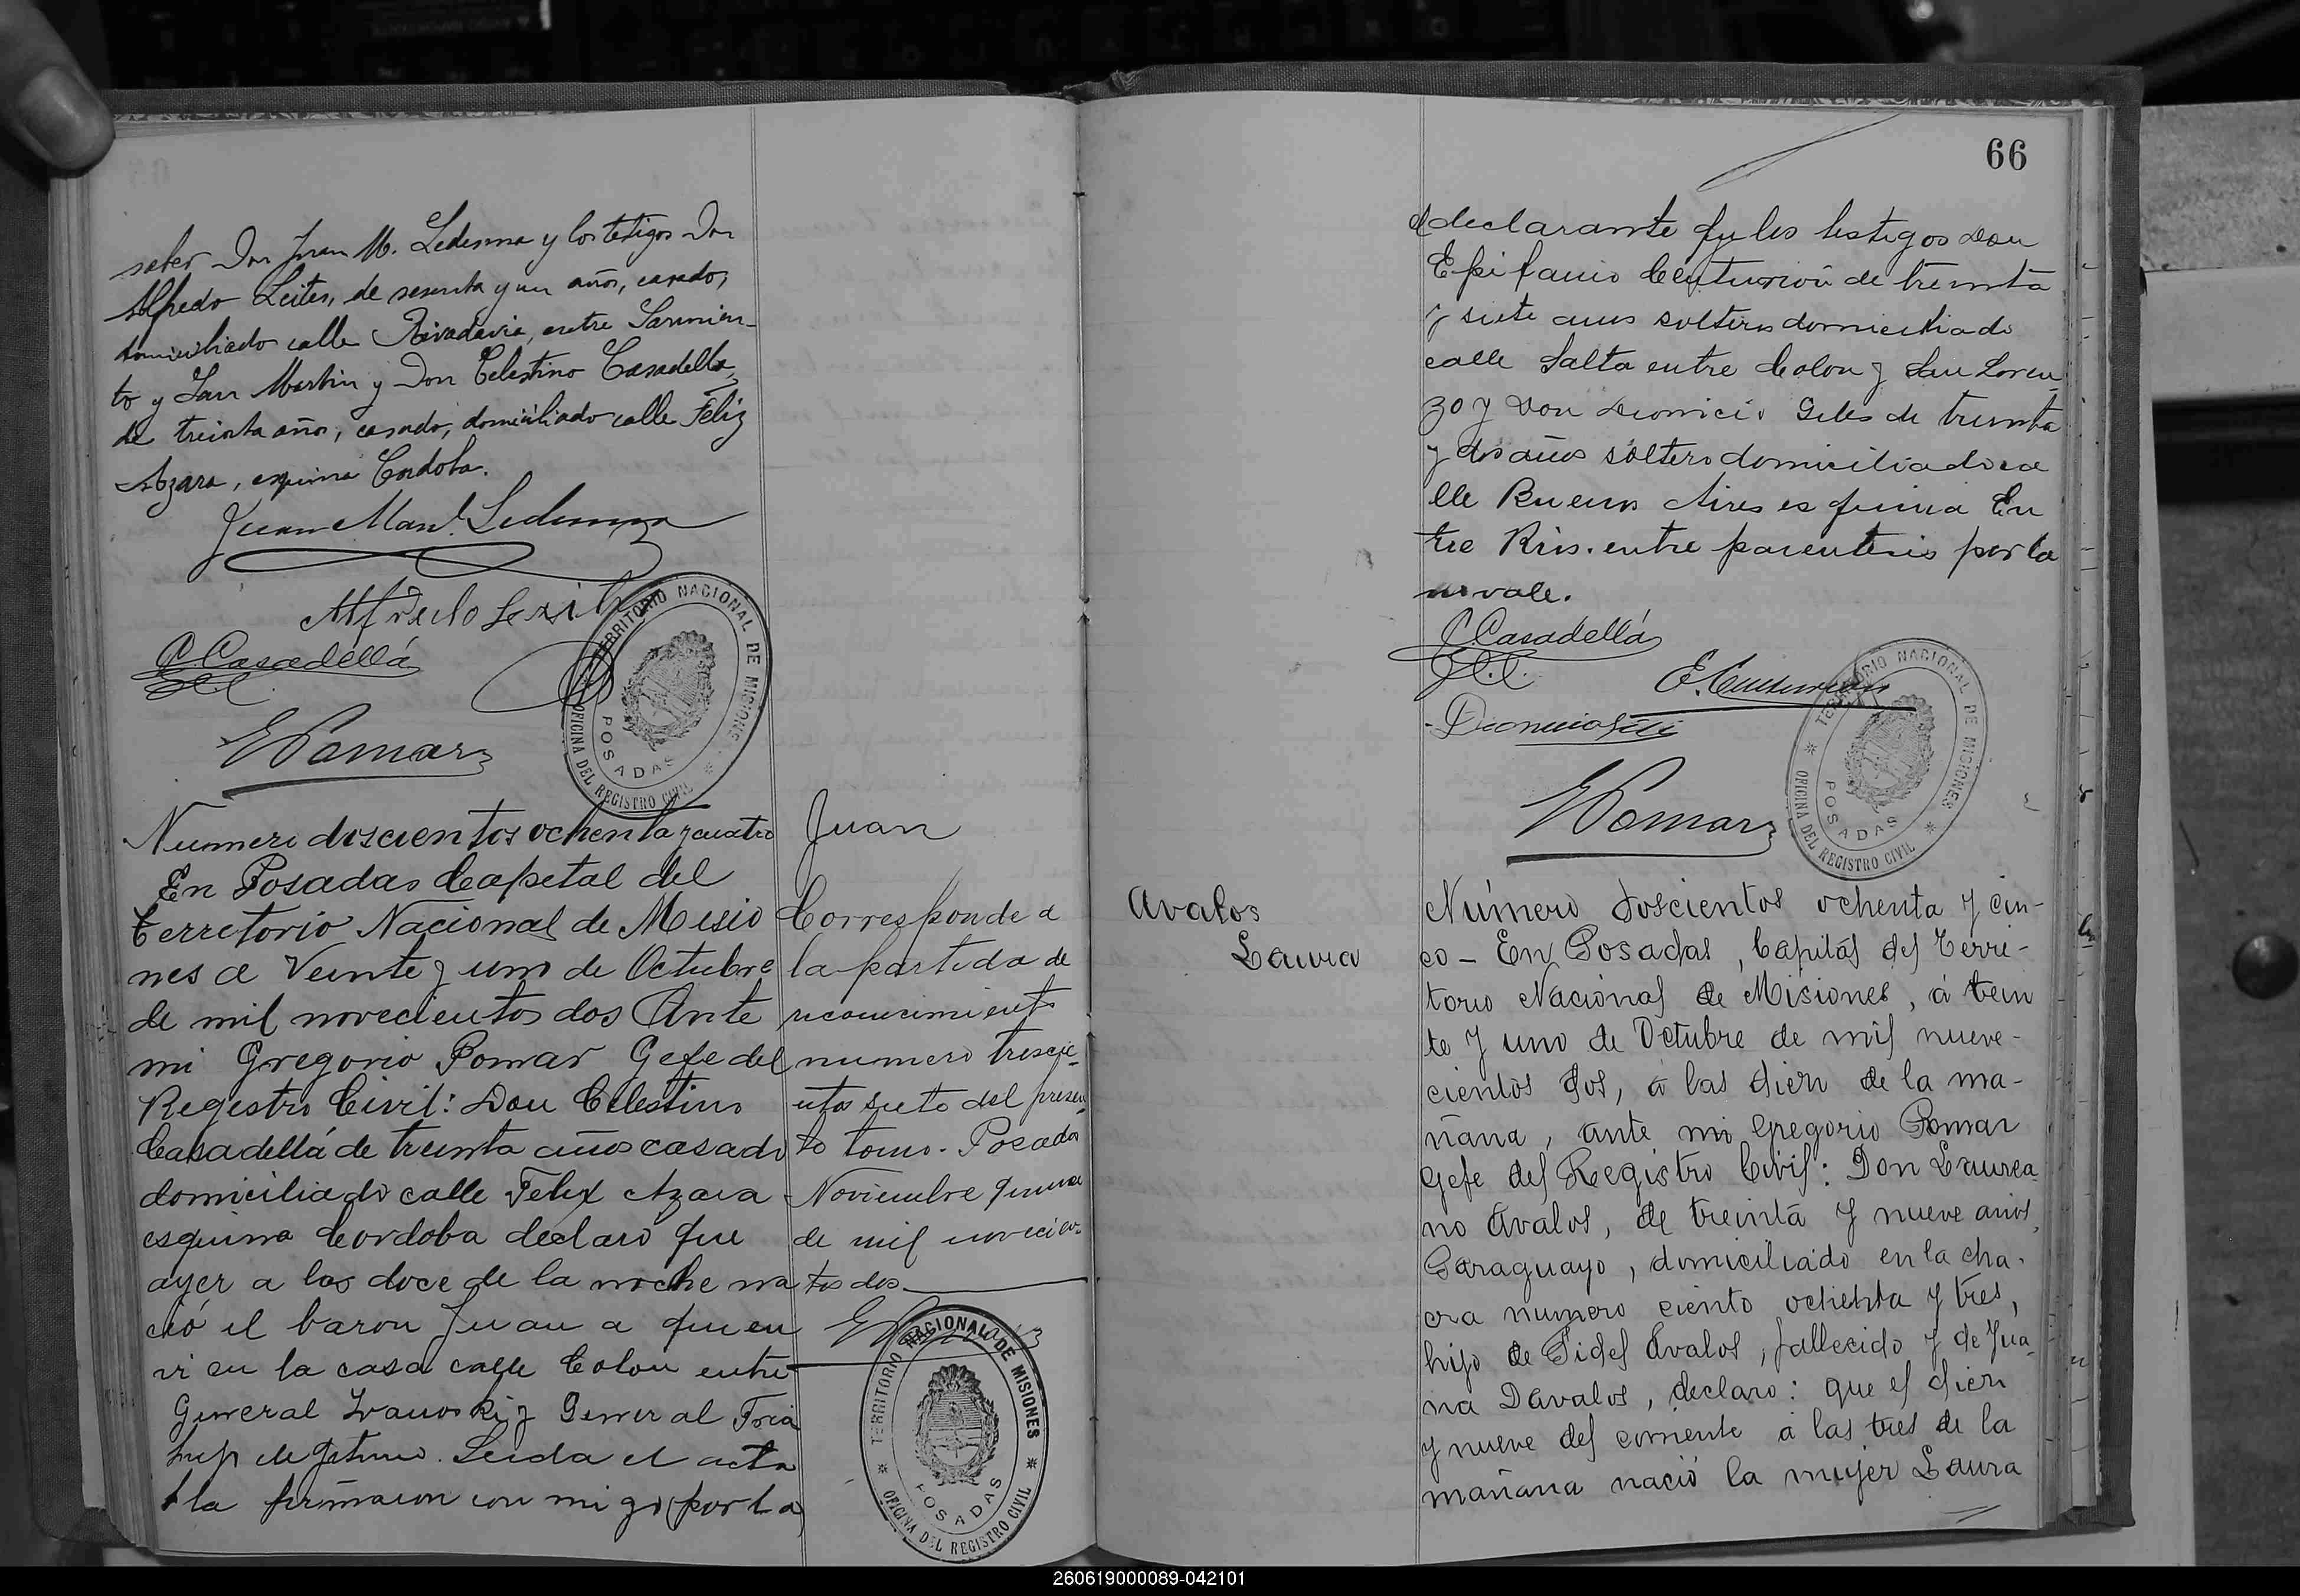 saber Don Juan M. Ledesma y los testigos Don
Alfredo Leites, de sesenta y un años, casado,
domiciliado calle Rivadavia, entre Sarmien-
to y San Martin y Don Celestino Casadellá,
de treinta años, casado, domiciliado calle Feliz
Azara, esquina Cordoba.
Juan Manl. Ledesma
Alfredo
C. Casadellá
G Pomar
TERRITORIO NACIONAL DE MISIONES
OFICINA DEL REGISTRO CIVIL
POSADAS
Numero doscientos ochenta y cuatro
En Posadas Capital del
Territorio Nacional de Misio
nes a Veinte y uno de Octubre
de mil novecientos dos Ante
mi Gregorio Pomar Gefe del
Registro Civil: Don Celestino
Casadellá de treinta años casado
domiciliado calle Felix Azara
esquina Cordoba declaró que
ayer a las doce de la noche na
ció el baron Juan a quien
vi en la casa calle Colon entre
General Ivanoski y General Fria
hijo de
Leida el acta
la firmaron con migo (por la)
Juan
Corresponde a
la partida de
reconocimiento
numero trescie-
ntos siete del presen
te tomo. Posadas
Noviembre quince
de mil novecien-
tos dos
TERRITORIO NACIONAL DE MISIONES
OFICINA DEL REGISTRO CIVIL
POSADAS
66
el declarante y los testigos Don
Epifanio Centurión de treinta
y siete años soltero domiciliado
calle Salta entre Colon y San Loren
zo y Don Dionicio Giles de treinta
y dos años soltero domiciliado ca
lle Buenos Aires esquina En
tre Rios. entre parentesis por la
no vale.
C Casadellá
E. Centurion
Dionicio
G Pomar
TERRITORIO NACIONAL DE MISIONES
OFICINA DEL REGISTRO CIVIL
POSADAS
Avalos
Laura
Número doscientos ochenta y cin-
co - En Posadas, Capital del Terri-
torio Nacional de Misiones, á vein
te y uno de Octubre de mil nueve-
cientos dos, á las diez de la ma-
ñana, ante mi Gregorio Pomar
Gefe del Registro Civil: Don Laurea-
no Avalos, de treinta y nueve años,
Paraguayo, domiciliado en la cha-
cra numero ciento ochenta y tres,
hijo de Fidel Avalos, fallecido y de Jua-
na Davalos, declaro: que el diez
y nueve del corriente á las tres de la
mañana nació la mujer Laura
260619000089-042101